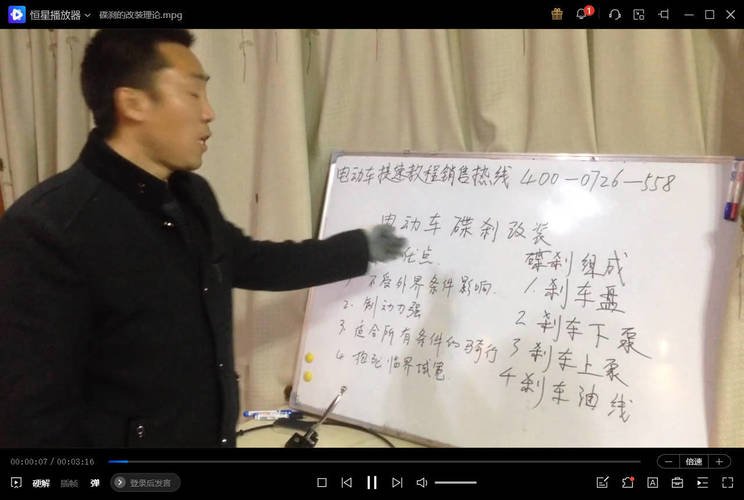 恒星播放器
碟刹的改装理论.mpg
1
电动车提速教程销售热线 400-0726-558
电动车碟刹改装
优点
不受外界条件影响
2. 制动力强
3. 适合所有条件的骑行
4. 临界
碟刹组成
1. 刹车盘
2 刹车下泵
3 刹车上泵
4 刹车油线
00:00:07 / 00:03:16
倍速
硬解
插帧
弹
登录后发言